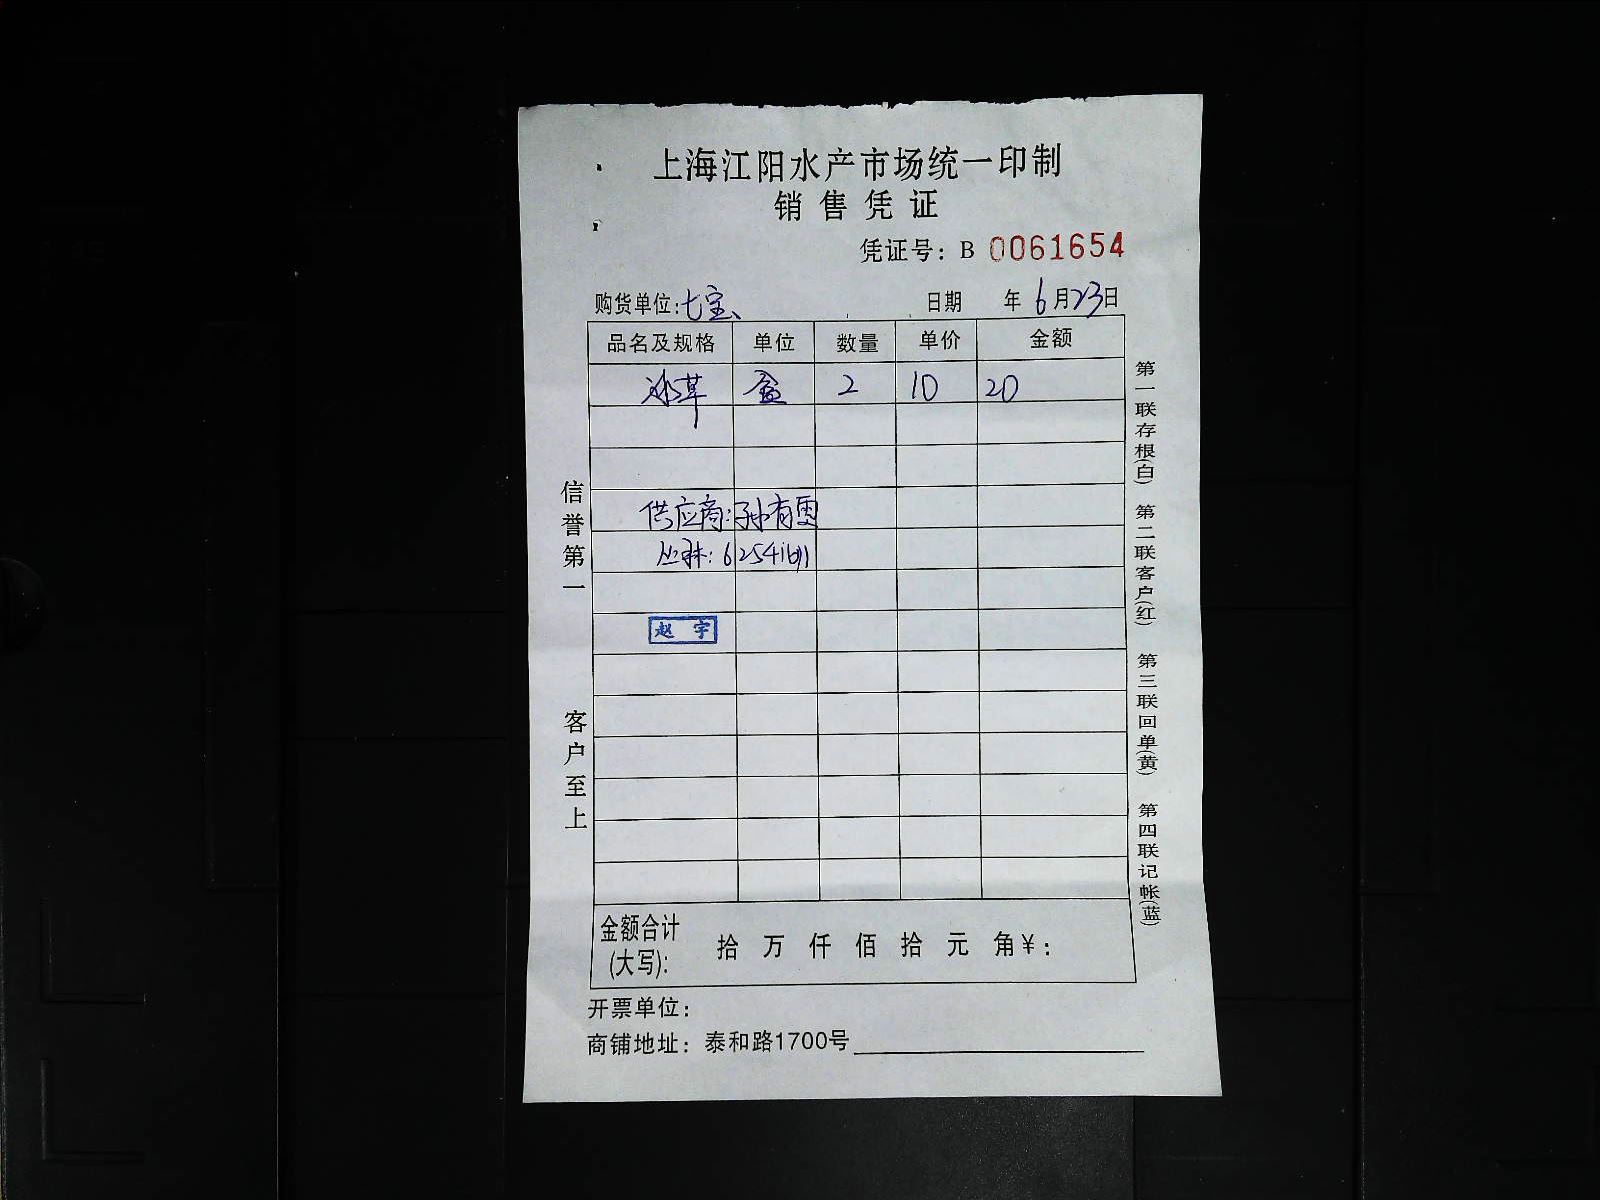 上海江阳水产市场统一印制
销售凭证
凭证号：B 0061654
购货单位：七宝 日期 年6月23日
品名及规格 单位 数量 单价 金额
冰草 盒 2 10 20
供应商：孙有
赵宇
金额合计(大写)： 拾 万 仟 佰 拾 元 角 ¥：
开票单位：
商铺地址：泰和路1700号
信誉第一
客户至上
第一联存根(白) 第二联客户(红) 第三联回单(黄) 第四联记帐(蓝)